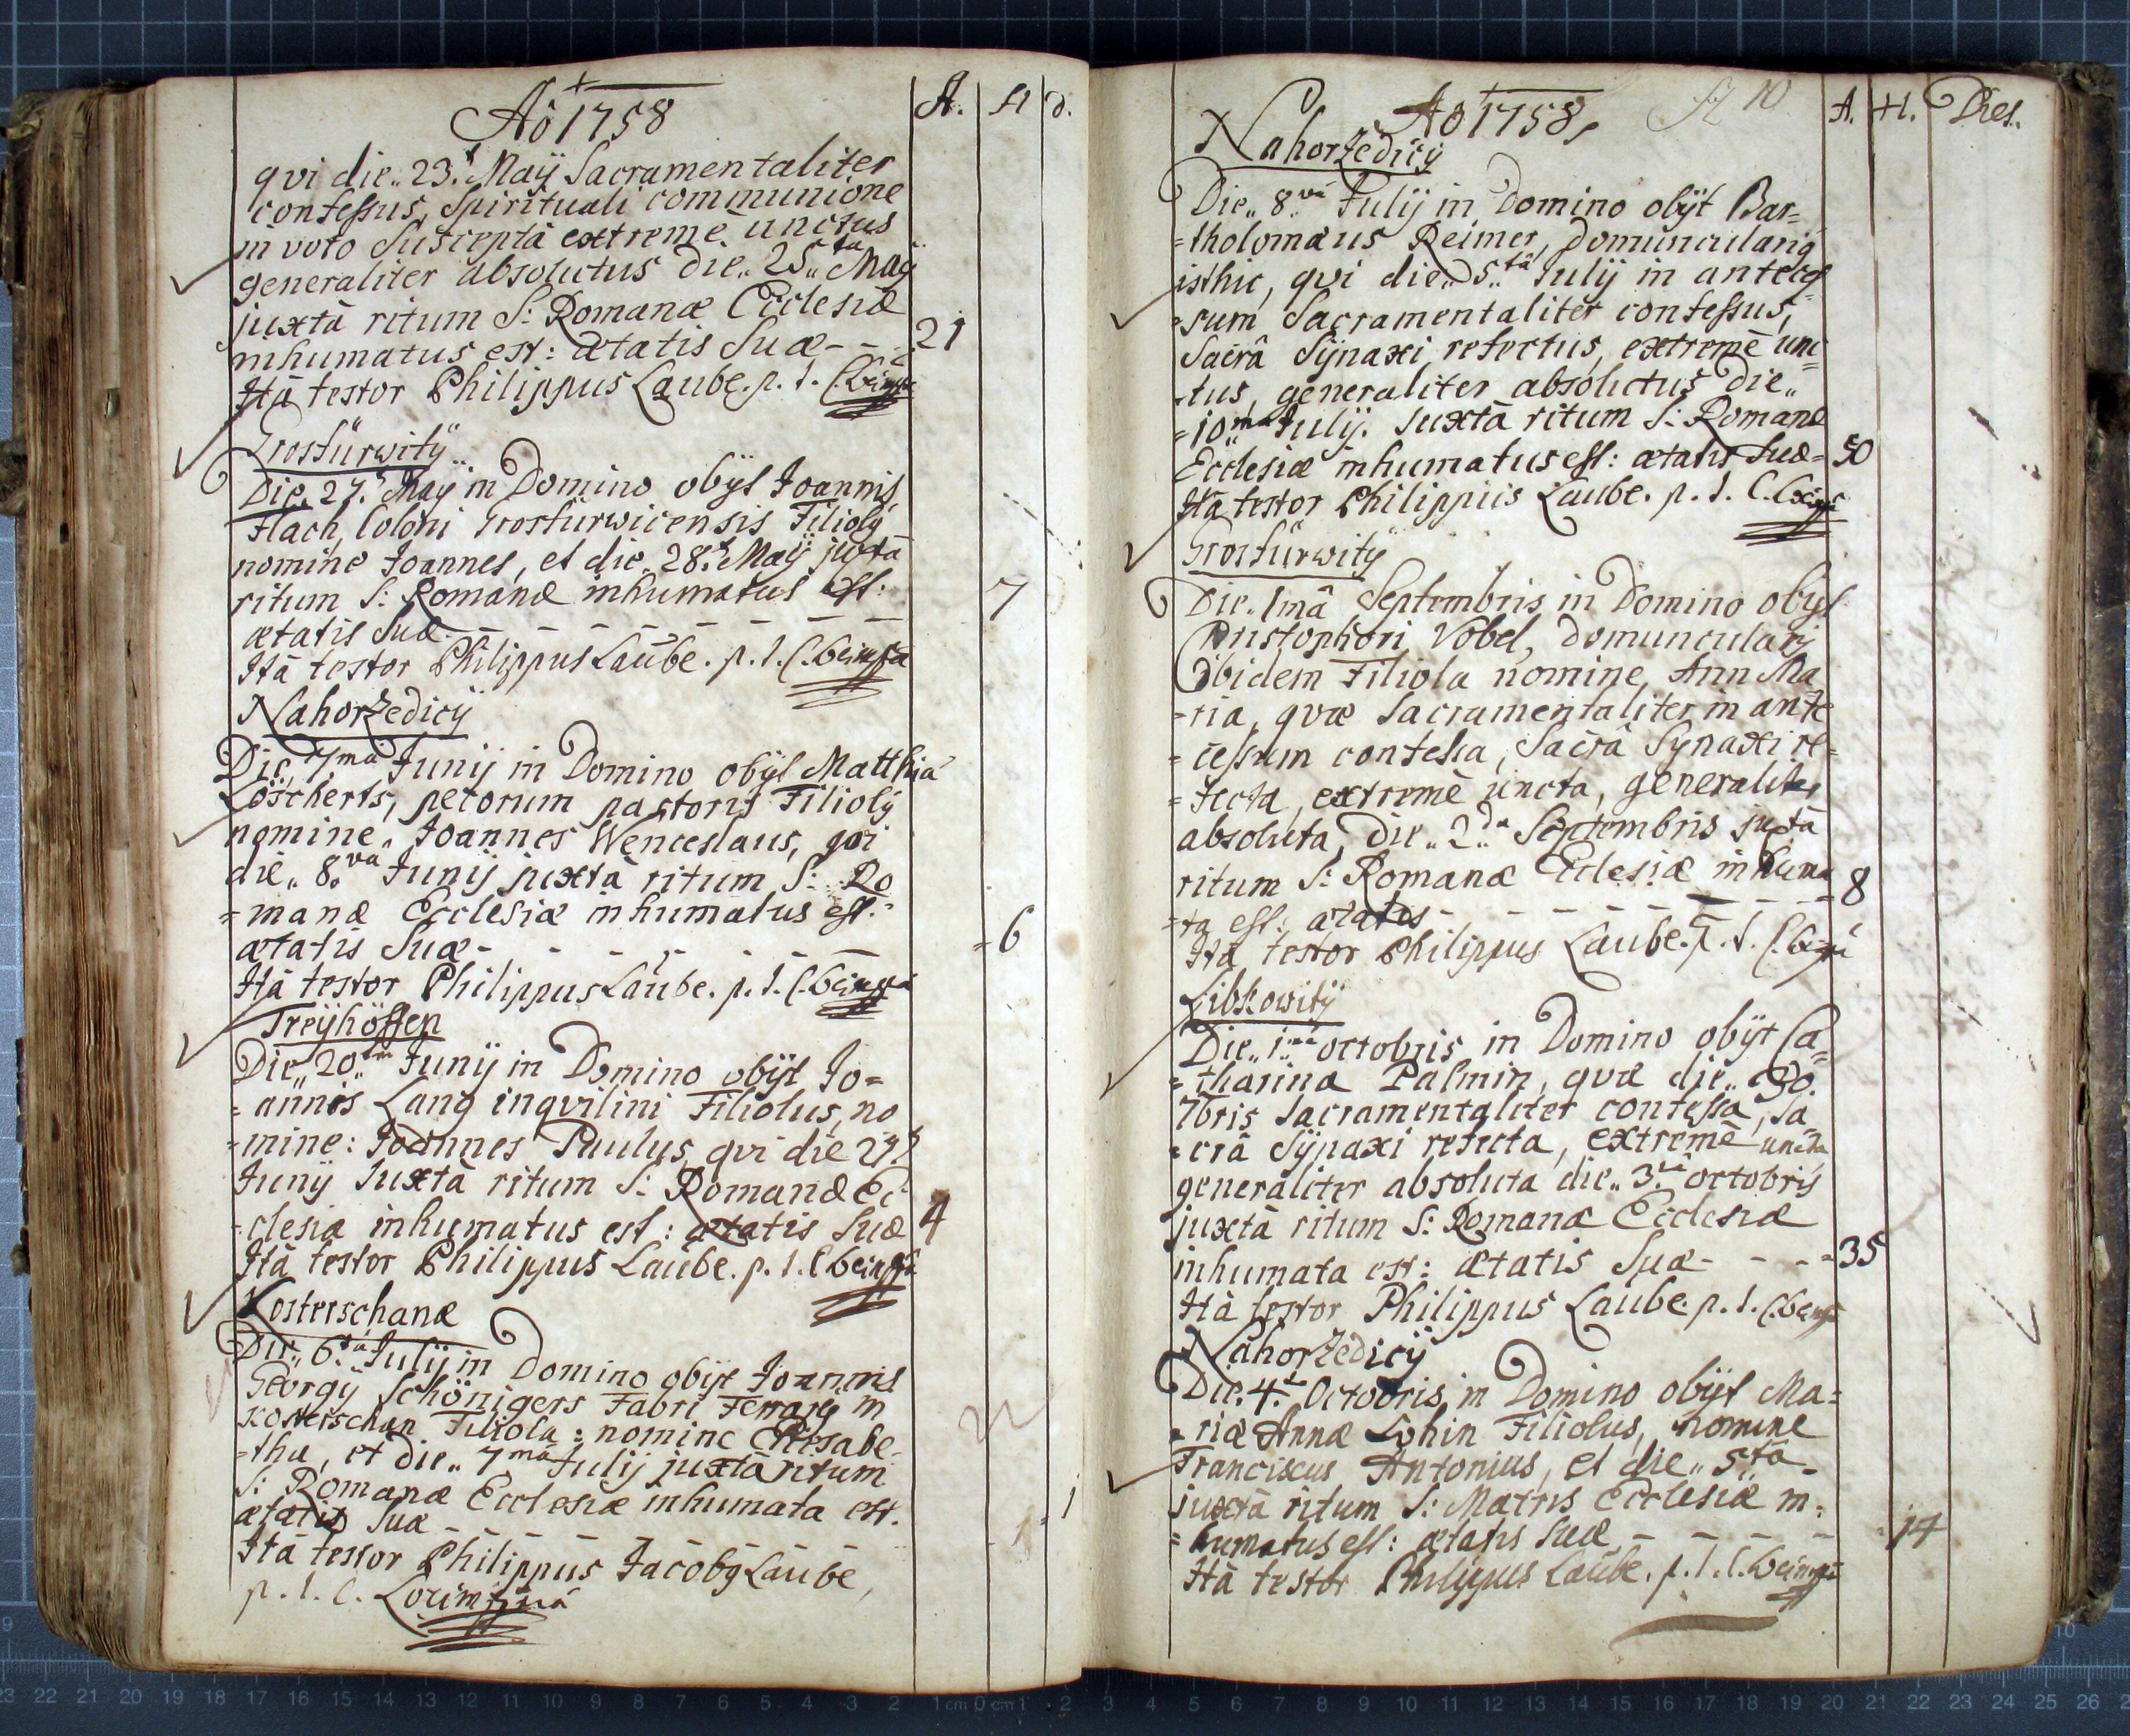 Aõ 1758
A. H d.
qvi die,, 23.t Maÿ Sacramentaliter
confessus, Spirituali communione
in voto Susceptâ extreme unctus
generaliter absolutus die,, 25,,ta Maÿ
juxtà ritum S: Romanæ Ecclesiæ
inhumatus est: ætatis Suæ - - - 21
Ità testor Philippus Laube. p. t.
Trosfürwitÿ
Die. 27.t Maÿ in Domino obÿt Joannis
Flach, Coloni Trosfürwicensis Filiolÿ
nomine Joannes, et die,, 28.t Maÿ juxtà
ritum S: Romanæ inhumatus est:
ætatis Suæ. - - - - - - - 7
Ità testor Philippus Laube. p. t.
Nahorzedicÿ
Die,, 7mâ Junÿ in Domino obÿt Matthiæ
Löscherts, pecorum pastoris Filiolÿ
nomine,, Joannes Wenceslaus, qvi
die,, 8.va Junij juxtà ritum S: Ro
=manæ Ecclesiæ inhumatus est:
ætatis Suæ - - - - - - = 6
Ità testor Philippus Laube. p. t.
Treÿhöffen
Die,, 20.ma Junÿ in Domino obÿt Jo=
=annis Lang inqvilini Filiolus, no
=mine: Joannes Paulus, qvi die
Junÿ Juxtà ritum S: Romanæ Ec
=clesiæ inhumatus est: ætatis Suæ 4
Ità testor Philippus Laube. p. t.
Kosterschanæ
Die,, 6.ta Julij in Domino obÿt Joannis
Georgÿ Schönigers Fabri Ferrarÿ in
Kosterschan Filiola: nomine
=tha, et die,, 7mâ Julij juxtà ritum
S: Romanæ Ecclesiæ inhumata est.
ætatis Suæ - - - - - 1
Ità testor Philippus Jacobÿ Laube,
p. t. C.
Aõ 1758,
10
A. H. Dies.
Nahorzedicÿ
Die,, 8.va Julij in Domino obÿt Bar=
=tholomæus Reimer, Domuncularig
isthic, qvi die,, 5.tâ Julij in anteces
=sum Sacramentaliter confessus,
Sacrâ Sÿnaxi refectus, extremè unc
=tus, generaliter absolutus Die,,
=10,,ma Julij. Juxtà ritum S: Romanæ
Ecclesiæ inhumatus est: ætatis Suæ = 50
Ità testor Philippus Laube. p. t.
Trosfürwitÿ
Die. 1mâ Septembris in Domino obÿt
Christophori Vobel, Domuncularÿ
ibidem Filiola nomine, Ann Ma
=ria, qvæ Sacramentaliter in ante
=cessum confessa, Sacrâ Synaxi re=
=fecta, extremè uncta, generaliter
absoluta, Die,, 2.da Septembris juxtà
ritum S: Romanæ Ecclesiæ inhuma
=ta est: ætatis - - - - - - = 8
Ità testor Philippus Laube. p. t.
Libkowitÿ
Die,, 1.ma octobris in Domino obÿt Ca=
=tharina Palmin, qvæ die,, 30.
7bris Sacramentaliter confessa, Sa
=crâ Sÿnaxi refecta, extremè uncta
generaliter absoluta die,, 3.tia octobris
juxtà ritum S: Romanæ Ecclesiæ
inhumata est: ætatis Suæ - - - = 35
Ità testor Philippus Laube. p. t.
Nahorzedicÿ
Die. 4.t Octobris in Domino obÿt Ma=
=riæ Annæ Lohin Filiolus, nomine
Franciscus Antonius, et die,, 5.ta
juxtà ritum S: Matris Ecclesiæ in=
=humatus est: ætatis Suæ - - - - - = 14
Ità testor Philippus Laube. p. t.